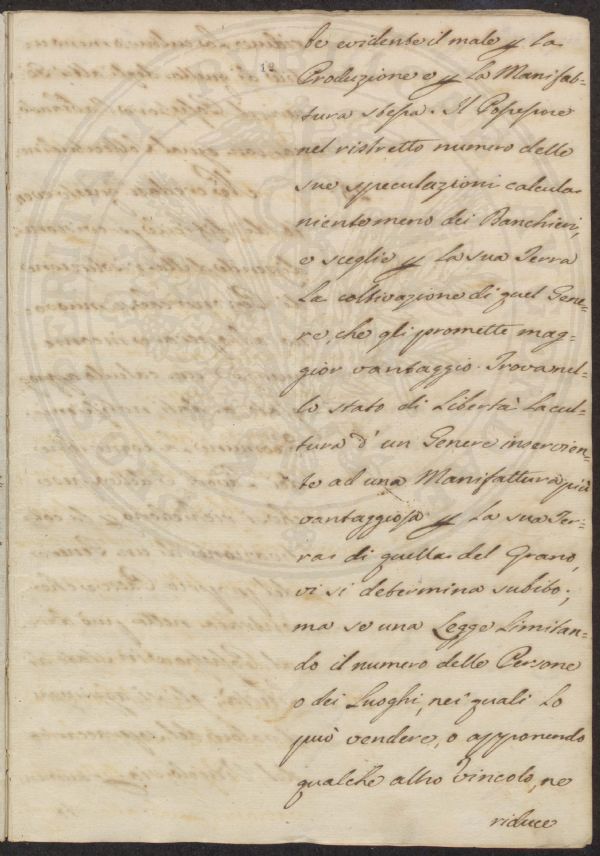 12
be evidente il male p la
Produzione e p la Manifat-
tura stessa. Il Possessore
nel ristretto numero delle
sue speculazioni calcula
nientemeno dei Banchieri,
e sceglie p la sua Terra
la coltivazione di quel Gene-
re, che gli promette mag-
gior vantaggio. Trova nel-
lo stato di Libertà la cul-
tura d'un Genere inservien-
te ad una Manifattura più
vantaggiosa p la sua Ter-
ra di quella del Grano,
vi si determina subito;
ma se una Legge limitan-
do il numero delle Persone
o dei Luoghi, nei quali lo
può vendere, o apponendo
qualche altro vincolo, ne
riduce